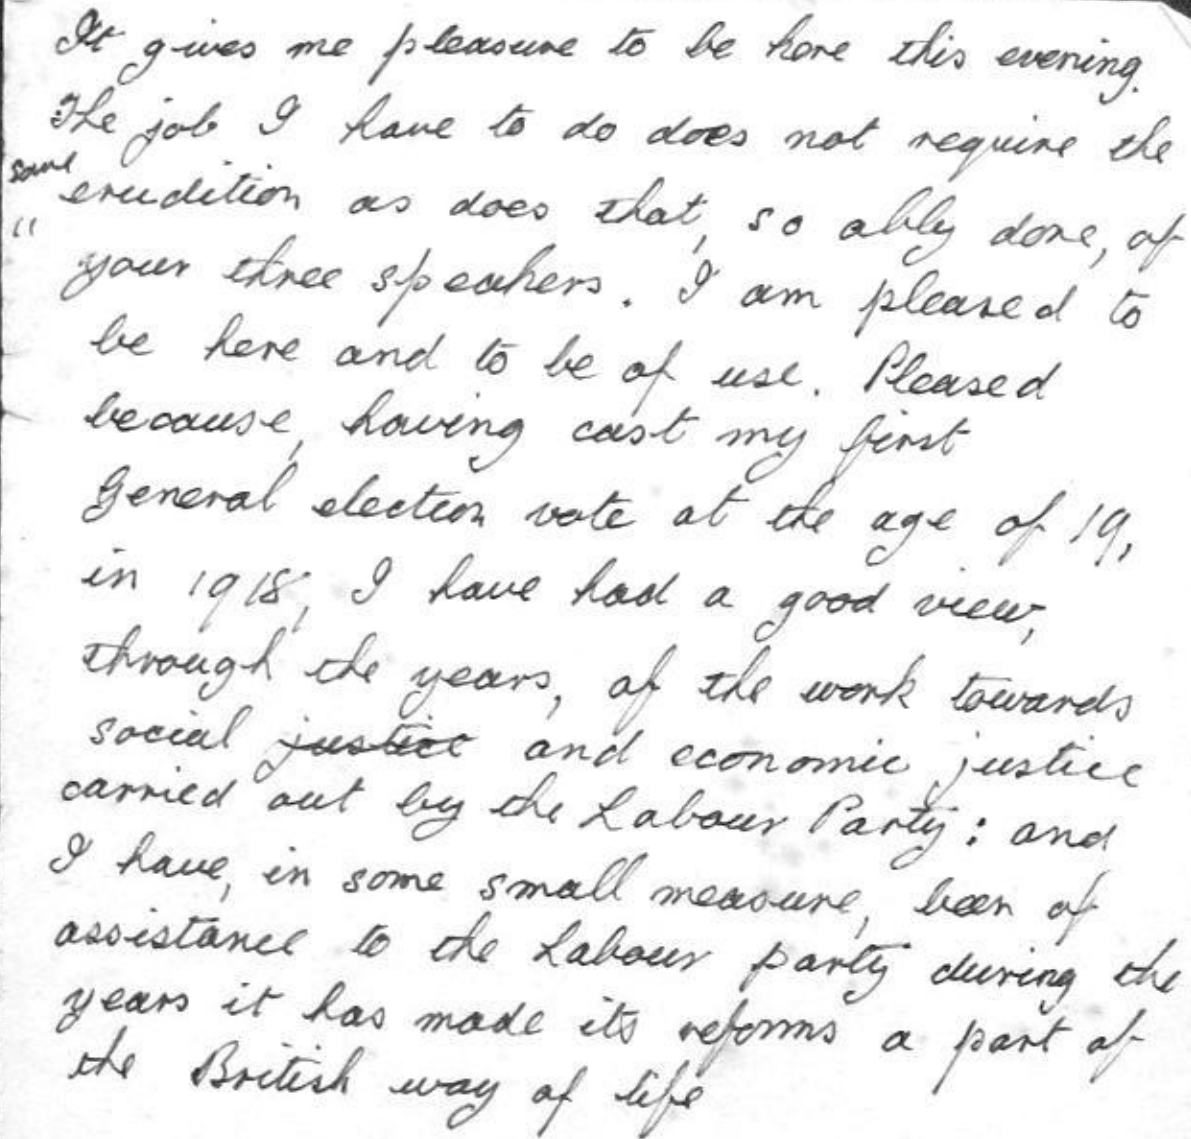 It gives me pleasure to be here this evening.
The job I have to do does not require the
same
erudition as does that, so ably done, of
"
your three speakers. I am pleased to
be here and to be of use. Pleased
because, having cast my first
General election vote at the age of 19,
in 1918, I have had a good view,
through the years, of the work towards
social justice and economic justice
carried out by the Labour Party: and
I have, in some small measure, been of
assistance to the Labour party during the
years it has made its reforms a part of
the British way of life